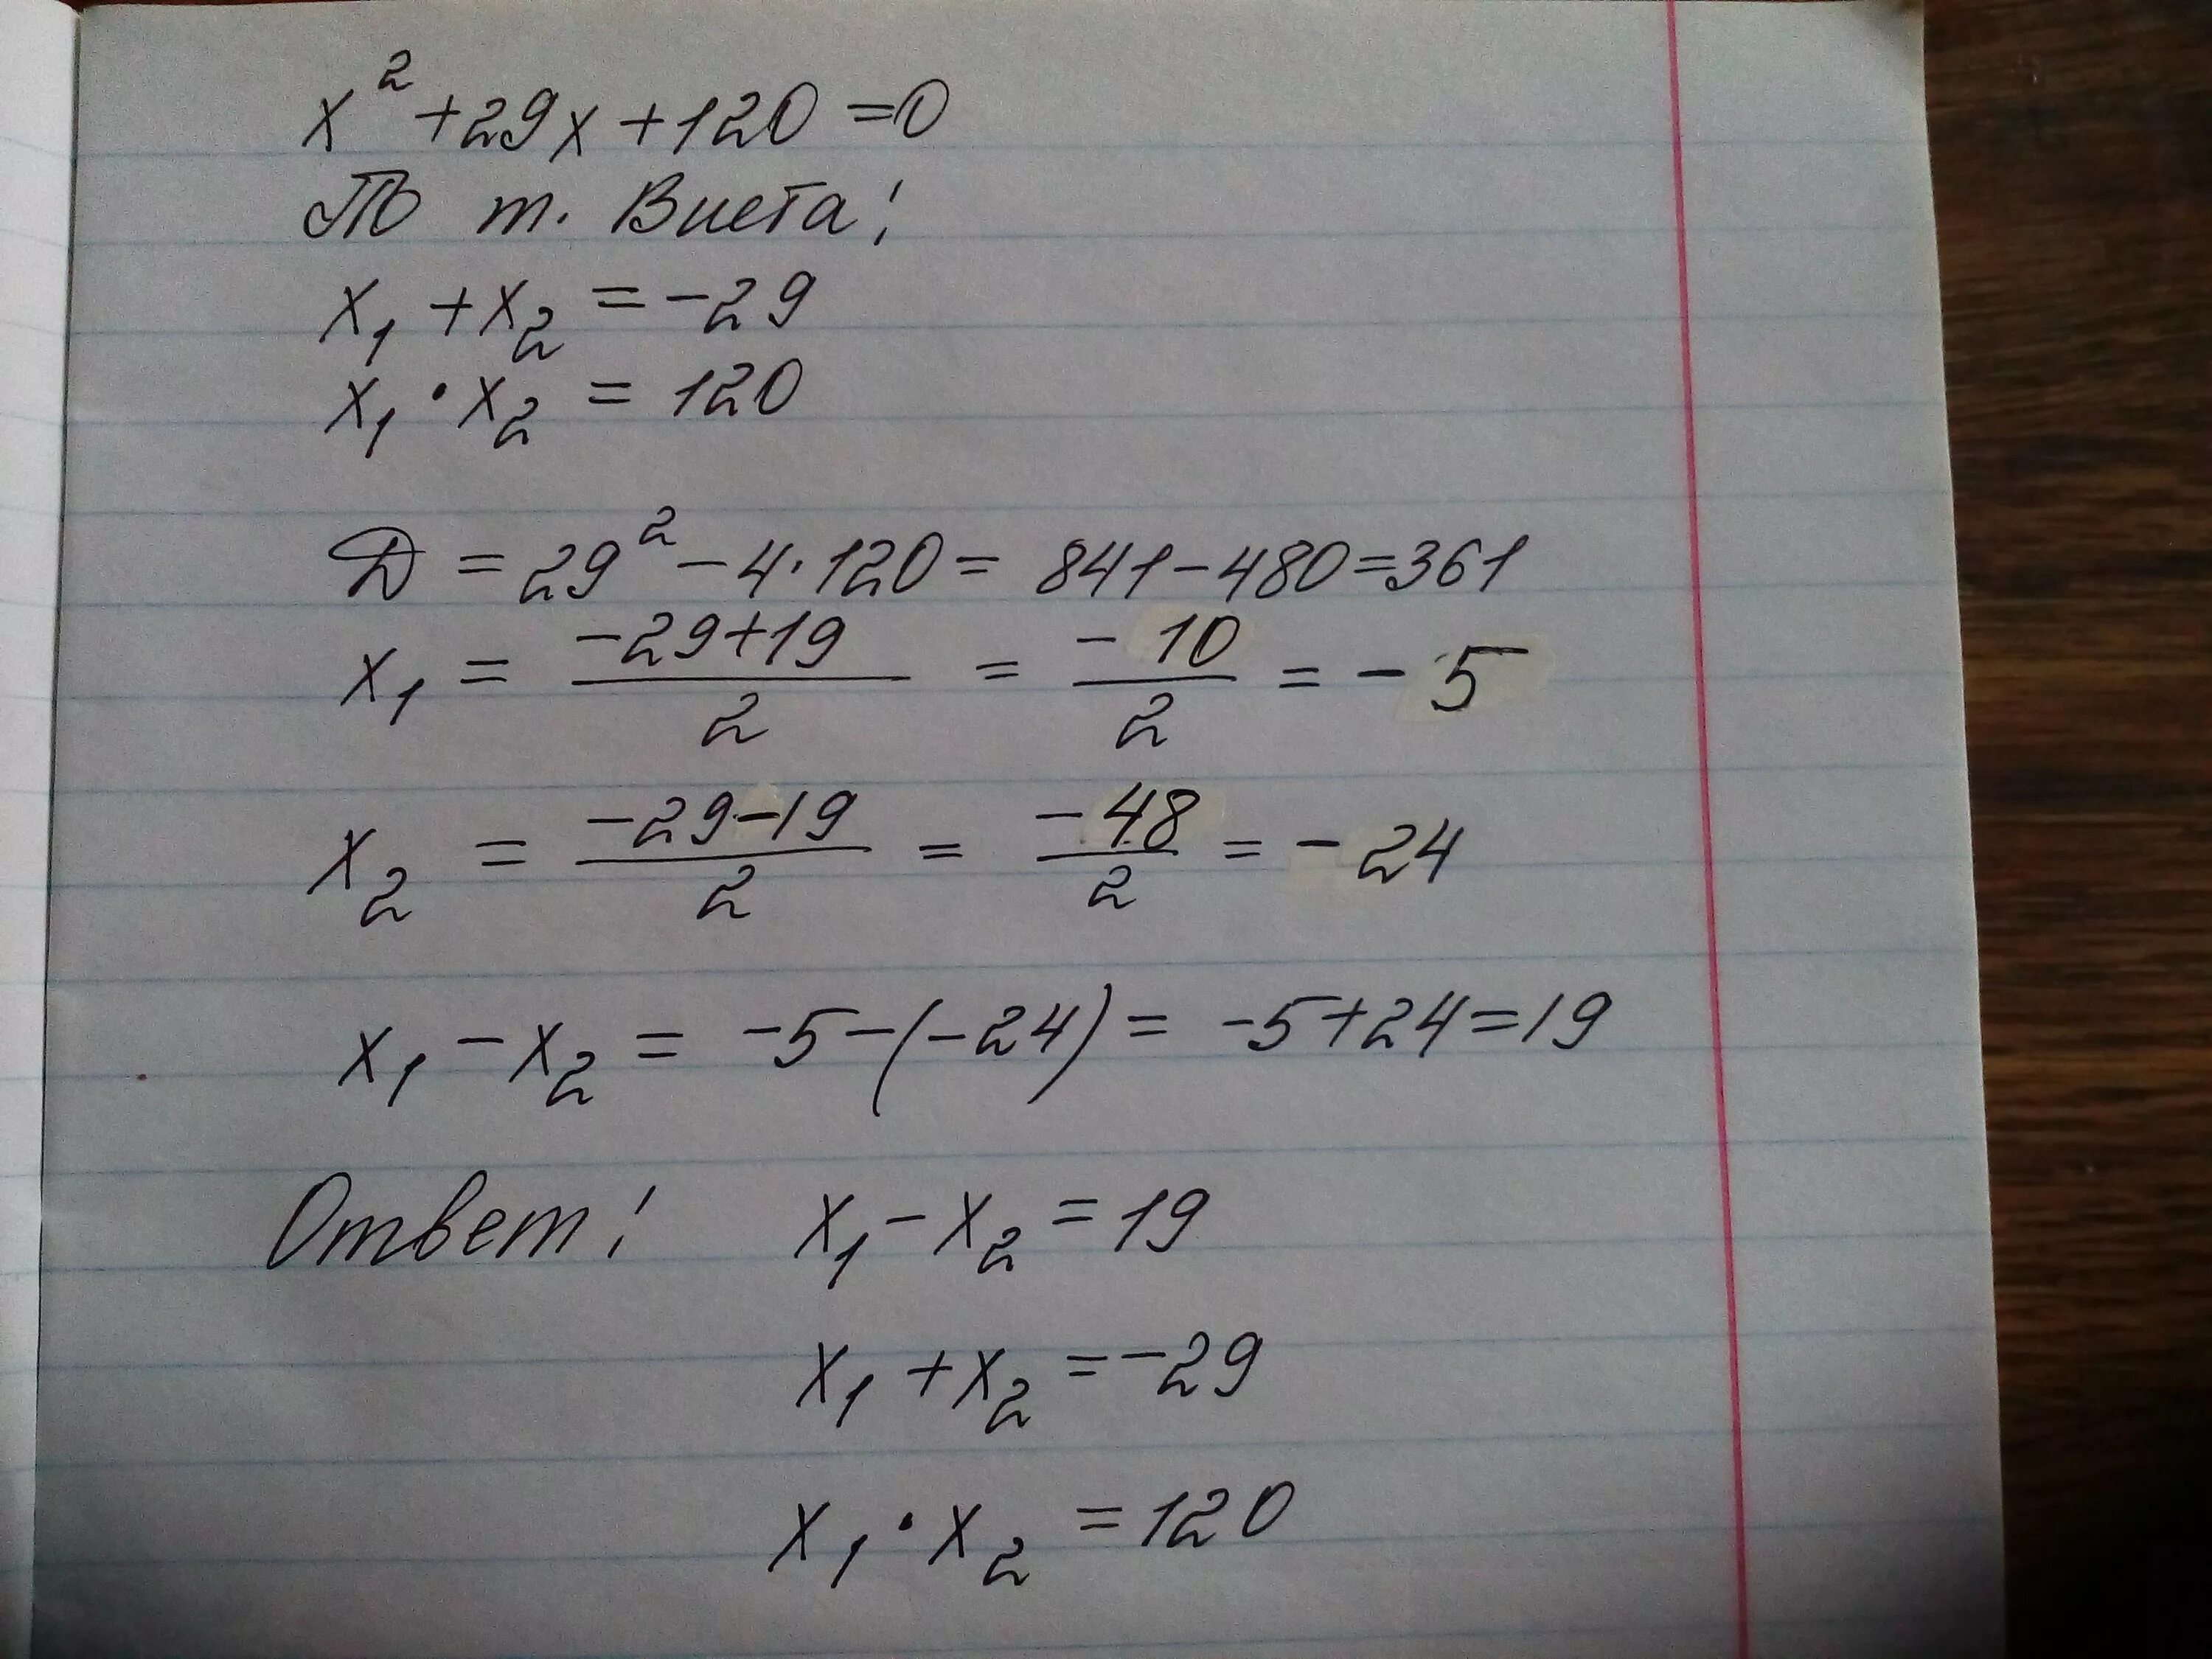 x² + 29x + 120 = 0
По т. Виета:
x₁ + x₂ = -29
x₁ · x₂ = 120
D = 29² - 4·120 = 841 - 480 = 361
x₁ = (-29+19)/2 = -10/2 = -5
x₂ = (-29-19)/2 = -48/2 = -24
x₁ - x₂ = -5-(-24) = -5+24 = 19
Ответ: x₁ - x₂ = 19
x₁ + x₂ = -29
x₁ · x₂ = 120